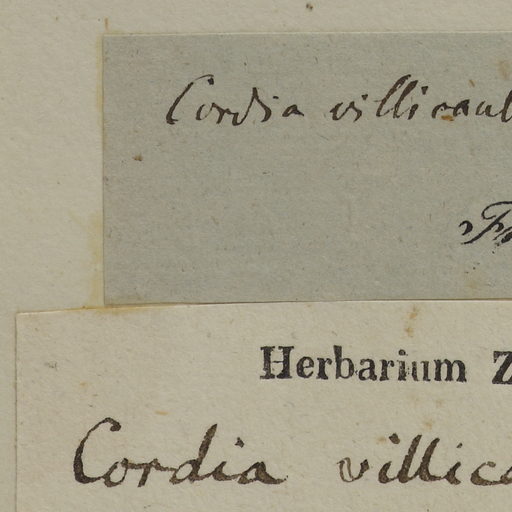 Cordia villicaul
Fr
Herbarium Z
Cordia villica